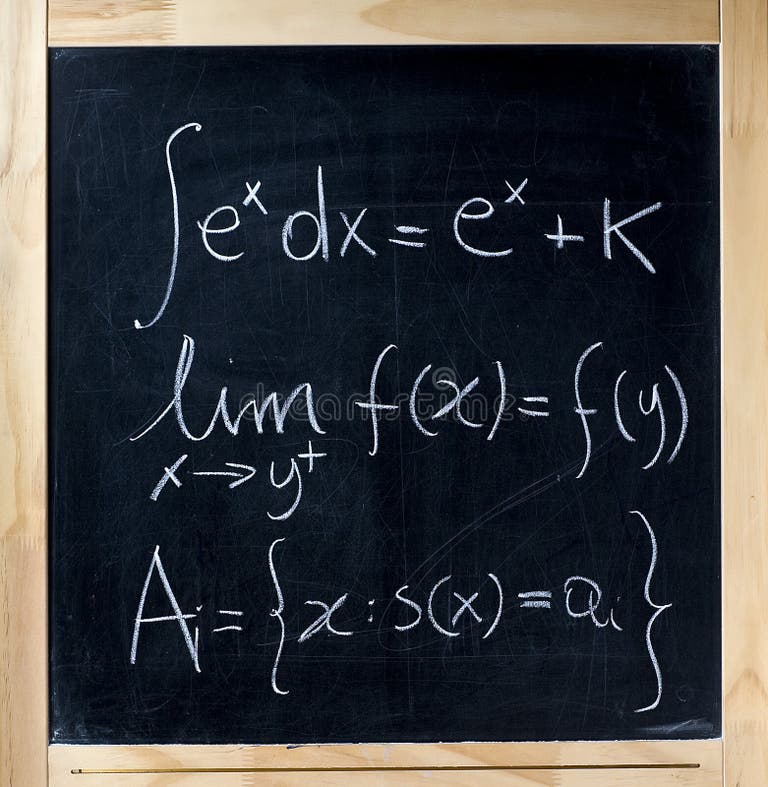 ∫eˣdx = eˣ + K
lim f(x) = f(y)
x → y⁺
Aᵢ = {x : s(x) = aᵢ}